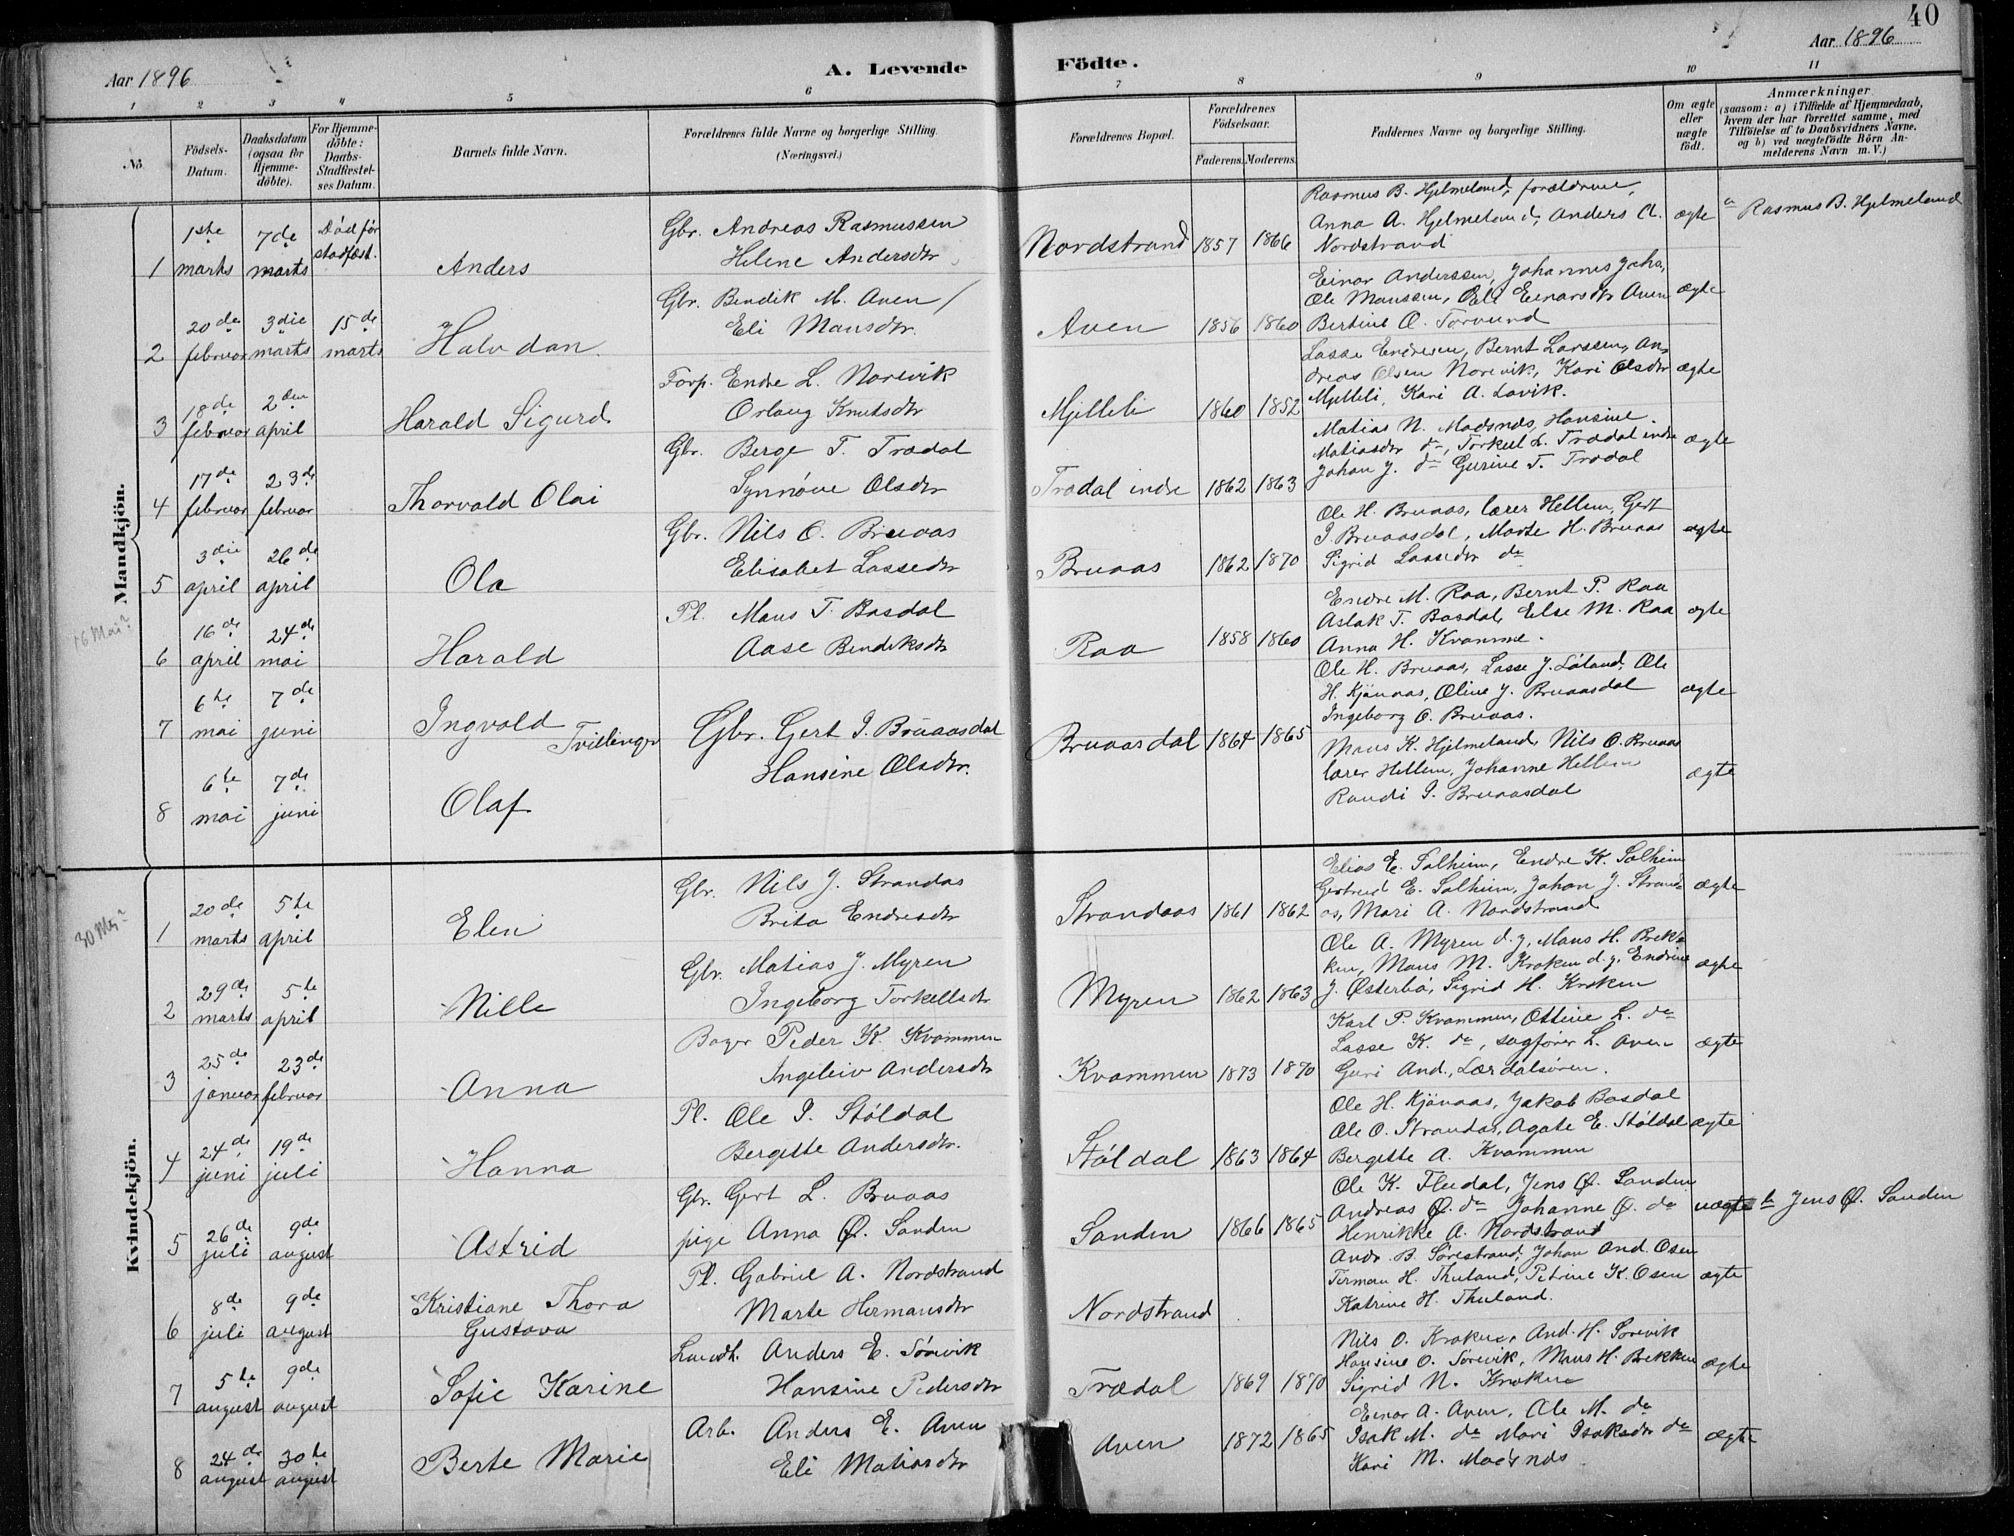 40
Aar 1896
Aar 1896
A. Levende
Födte.
1 2 3 4 5 6 7 8 9 10 11
No.
Födsels-Datum.
Daabsdatum (ogsaa for Hjemme-döbte).
For Hjemme-döbte: Daabs-Stadfæstel-ses Datum.
Barnets fulde Navn.
Forældrenes fulde Navne og borgerlige Stilling.
(Næringsvei.)
Forældrenes Bopæl.
Forældrenes Födselsaar.
Faderens. Moderens.
Faddernes Navne og borgerlige Stilling.
Om ægte eller uægte födt.
Anmærkninger
(saasom: a) i Tilfælde af Hjemmedaab,
hvem der har forrettet samme, med
Tilföielse af to Daabsvidners Navne.
og b) ved uægtefödte Börn An-
melderens Navn m. V.)
Mandkjön.
1 1ste marts 7de marts Död før stadfæst. Anders
Gbr. Andreas Rasmussen
Helene Andersdtr
Nordstrand 1857 1866
Rasmus B. Hjelmeland, forældrene,
Anna A. Hjelmeland, Anders A.
Nordstrand
ægte
a Rasmus B. Hjelmeland
2 20de februar 3die marts 15de marts Halvdan
Gbr. Bendik M. Aven
Eli Mansdtr.
Aven 1856 1860
Einar Anderssen, Johannes Johs,
Ole Manssen, Eli Einarsdtr Aven
Bertine O. Torvund
ægte
3 18de februar 2den april Harald Sigurd
Forp. Endre L. Norevik
Orlaug Knutsdtr
Mjelleli 1860 1852
Lasse Endresen, Bernt Larssen, An-
dreas Olsen Norevik, Kari Olsdtr
Mjelleli, Kari A. Lavik.
ægte
4 17de februar 23de februar Thorvald Olai
Gbr. Berge T. Trædal
Synnøve Olsdtr
Trædal indre 1862 1863
Matias N. Madsnds, Hansine
Matiasdtr do, Torkel L. Trædal indre
Johan J. do Gurine T. Trædal
ægte
5 3die april 26de april Ola
Gbr. Nils O. Bruaas
Elisabet Lassedtr
Bruaas 1862 1870
Ole H. Bruaas, lærer Hellem, Gert
I. Bruaasdal, Marte H. Bruaas
Sigrid Lassedtr do
ægte
16 Mai?
6 16de april 24de mai Harald
Pl. Mans T. Basdal
Aase Bendiksdtr
Raa 1858 1860
Endre M. Raa, Bernt P. Raa
Aslak T. Basdal, Else M. Raa
Anna H. Kvamme.
ægte
7 6te mai 7de juni Ingvald
Tvillinger
Gbr. Gert I. Bruaasdal
Hansine Olsdtr.
Bruaasdal 1864 1865
Ole H. Bruaas, Lasse J. Løland, Ole
H. Kjønaas, Oline J. Bruaasdal
Ingeborg O. Bruaas.
ægte
8 6te mai 7de juni Olaf
Mans K. Hjelmeland, Nils O. Bruaas
lærer Hellem, Johanne Hellem
Randi I. Bruaasdal
ægte
Kvindekjön.
30 Mts?
1 20de marts 5te april Elen
Gbr. Nils J. Strandas
Brita Endresdtr
Strandaas 1861 1862
Elias E. Solheim, Endre K. Solheim
Gertrud E. Solheim, Johan J. Strand-
as, Mari A. Nordstrand
ægte
2 29de marts 5te april Nille
Gbr. Matias J. Myren
Ingeborg Torkellsdtr
Myren 1862 1863
Ole A. Myren d. y, Mans H. Brek-
ken, Mans M. Kroken d. y. Endrine
J. Østerbø, Sigrid H. Kroken
ægte
3 25de januar 23de februar Anna
Bager Peder K. Kvammen
Ingeleiv Andersdtr
Kvammen 1873 1870
Karl P. Kvammen, Ottine L. do
Lasse K. do, sagfører L. Aven
Guri And., Lærdalsøren.
ægte
4 24de juni 19de juli Hanna
Pl. Ole I. Støldal
Bergette Andersdtr.
Støldal 1863 1864
Ole H. Kjønaas, Jakob Basdal
Ole O. Strandas, Agate E. Støldal
Bergette A. Kvammen
ægte
5 26de juli 9de august Astrid
Gbr. Gert L. Bruaas
pige Anna Ø. Sanden
Sanden 1866 1865
Ole K. Fledal, Jens Ø. Sanden
Andreas Ø. do Johanne Ø. do
Henrikke A. Nordstrand
uægte
b Jens Ø. Sanden
6 8de juli 9de august Kristiane Thora Gustava
Pl. Gabriel A. Nordstrand
Marte Hermansdtr
Nordstrand
Andr. B. Sørestrand, Johan And. Osen
Herman H. Thuland, Petrine K. Osen
Katrine H. Thuland.
ægte
7 5te august 9de august Sofie Karine
Landh. Anders E. Sørevik
Hansine Pedersdtr
Trædal 1869 1870
Nils O. Kroken, And. H. Sørevik
Hansine O. Sørevik, Mans H. Brekken
Sigrid N. Kroken
ægte
8 24de august 30te august Berte Marie
Arb. Anders E. Aven
Eli Matiasdtr
Aven 1872 1865
Einar A. Aven, Ole M. do
Isak M. do Mari Isaksdtr do
Kari M. Madsnds.
ægte